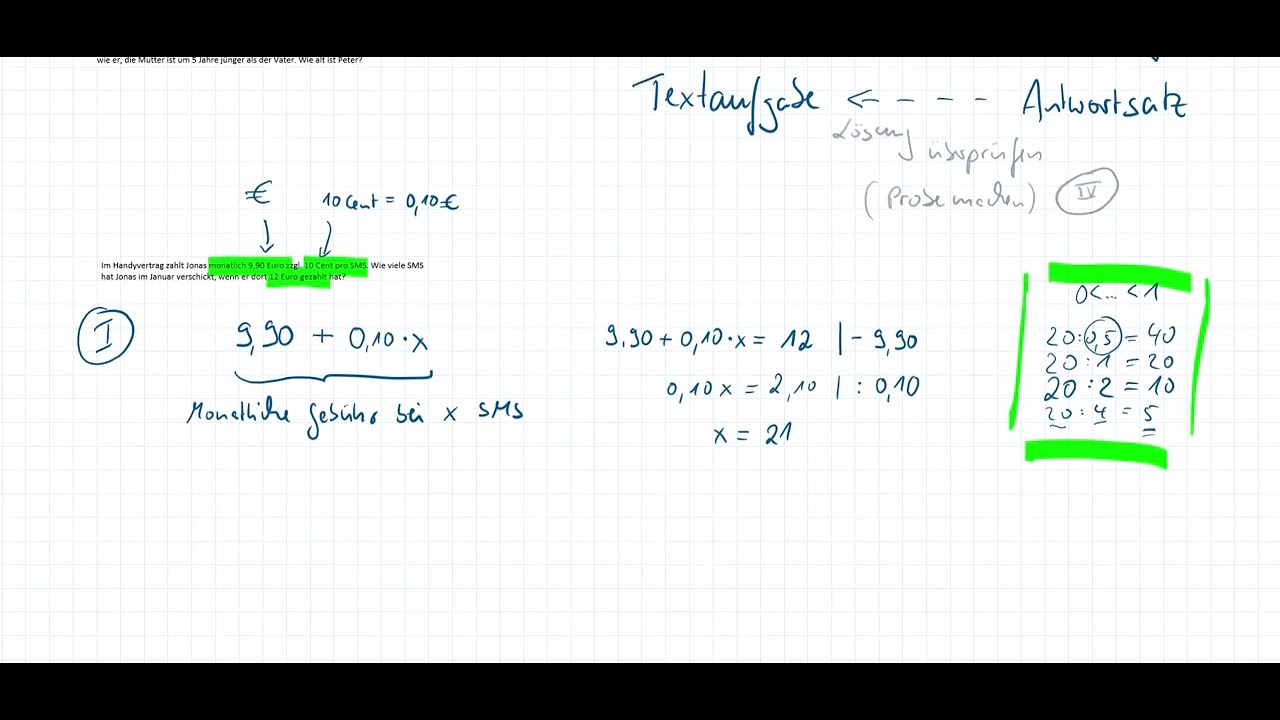 wie er, die Mutter ist um 5 Jahre jünger als der Vater. Wie alt ist Peter?
Textaufgabe <---- Antwortsatz
Lösung überprüfen
(Probe machen) IV
€ 10 Cent = 0,10€
Im Handyvertrag zahlt Jonas monatlich 9,90 Euro zzgl. 10 Cent pro SMS. Wie viele SMS
hat Jonas im Januar verschickt, wenn er dort 12 Euro gezahlt hat?
I
9,90 + 0,10·x
Monatliche gebühr bei x SMS
9,90 + 0,10·x = 12 | - 9,90
0,10x = 2,10 | : 0,10
x = 21
0<...<1
20:0,5 = 40
20:1 = 20
20:2 = 10
20:4 = 5